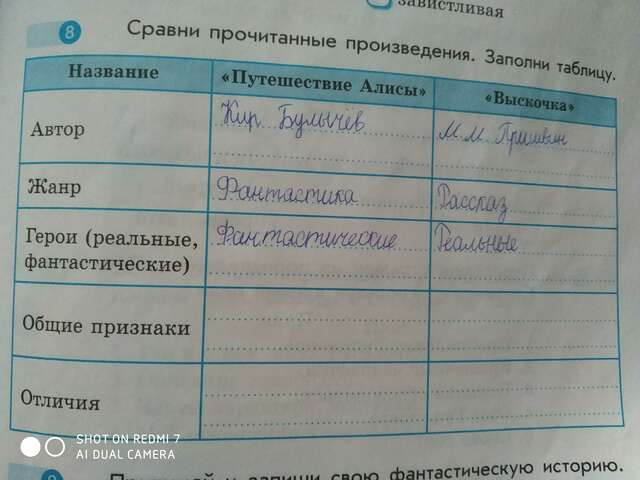 завистливая
8 Сравни прочитанные произведения. Заполни таблицу.
Название «Путешествие Алисы» «Выскочка»
Автор Кир Булычёв М.М. Пришвин
Жанр Фантастика Рассказ
Герои (реальные, фантастические) Фантастические Реальные
Общие признаки
Отличия
SHOT ON REDMI 7
AI DUAL CAMERA
и запиши свою фантастическую историю.